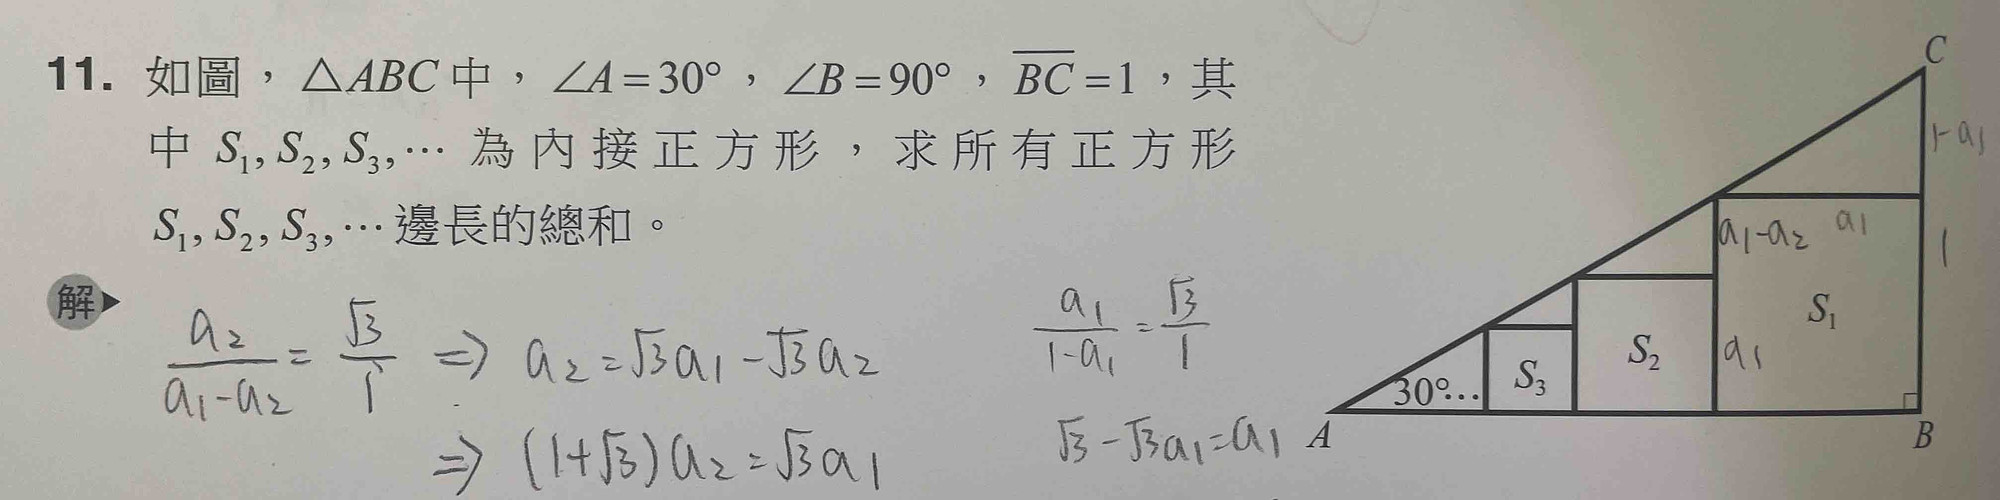 11. 如圖，△ABC中，∠A=30°，∠B=90°，\overline{BC}=1，其
中 S₁, S₂, S₃, ⋯ 為內接正方形，求所有正方形
S₁, S₂, S₃, ⋯ 邊長的總和。
解
a₂/(a₁-a₂) = √3/1 ⇒ a₂=√3a₁-√3a₂
⇒ (1+√3)a₂=√3a₁
a₁/(1-a₁) = √3/1
√3-√3a₁=a₁
C
1-a₁
a₁-a₂ a₁
1
S₁
a₁
S₂
S₃
30°…
A
B